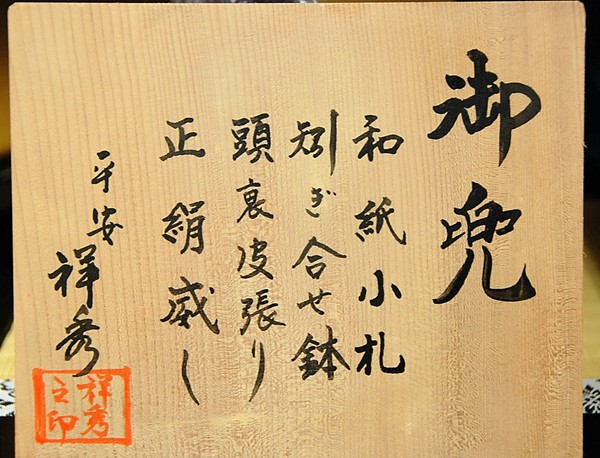 御兜
和紙小札
矧ぎ合せ鉢
頭裏皮張り
正絹威し
平安
祥秀
祥秀
之印